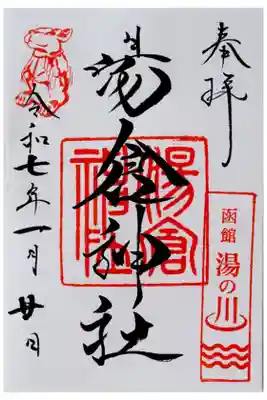 奉拝
湯倉神社
湯倉神社
函館
湯の川
令和七年一月廿日